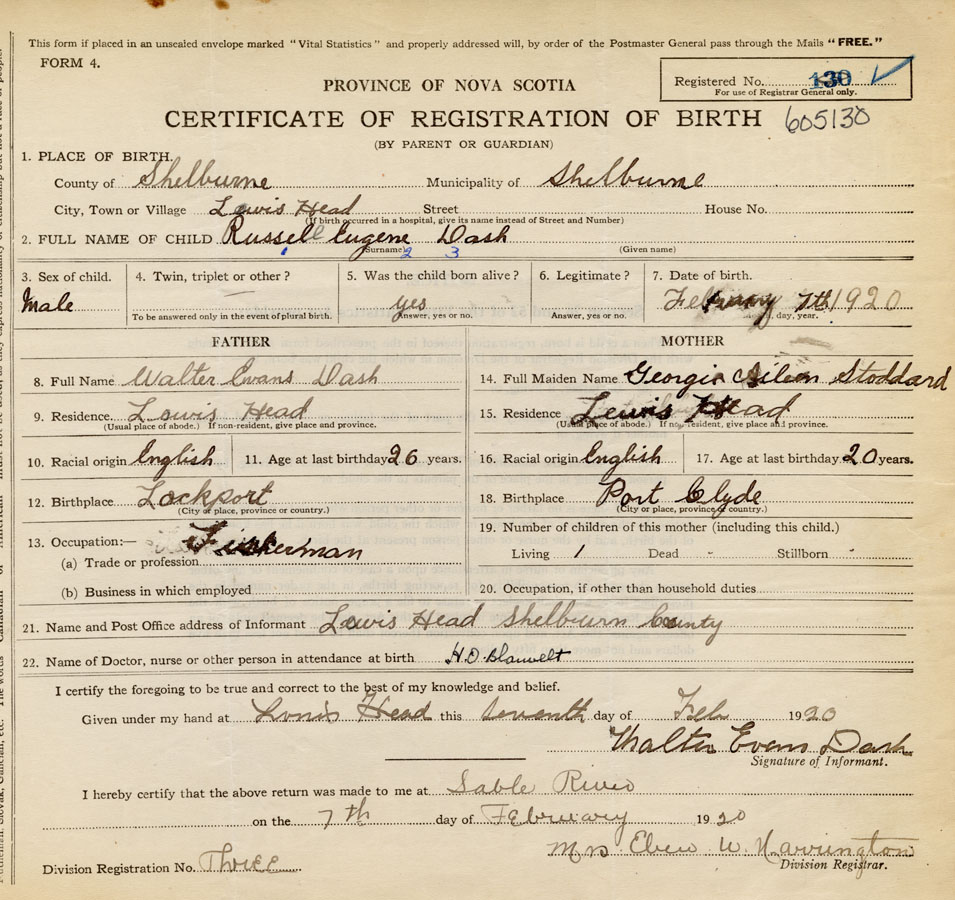 This form if placed in an unsealed envelope marked "Vital Statistics" and properly addressed will, by order of the Postmaster General pass through the Mails "FREE."
FORM 4.
Registered No. 130 ✓
For use of Registrar General only.
PROVINCE OF NOVA SCOTIA
CERTIFICATE OF REGISTRATION OF BIRTH 605130
(BY PARENT OR GUARDIAN)
1. PLACE OF BIRTH.
County of Shelburne Municipality of Shelburne
City, Town or Village Lewis Head Street House No.
(If birth occurred in a hospital, give its name instead of Street and Number)
2. FULL NAME OF CHILD Russell Eugene Dash
(Surname) (Given name)
1 2 3
3. Sex of child. 4. Twin, triplet or other? 5. Was the child born alive? 6. Legitimate? 7. Date of birth.
Male yes February 7th 1920
To be answered only in the event of plural birth. Answer, yes or no. Answer, yes or no. day, year.
FATHER MOTHER
8. Full Name Walter Evans Dash 14. Full Maiden Name Georgia Aileen Stoddard
9. Residence. Lewis Head 15. Residence Lewis Head
(Usual place of abode.) If non-resident, give place and province. (Usual place of abode.) If non-resident, give place and province.
10. Racial origin English 11. Age at last birthday 26 years. 16. Racial origin English 17. Age at last birthday 20 years.
12. Birthplace Lockport 18. Birthplace Port Clyde
(City or place, province or country.) (City or place, province or country.)
13. Occupation:— Fisherman 19. Number of children of this mother (including this child.)
(a) Trade or profession Living 1 Dead - Stillborn -
(b) Business in which employed 20. Occupation, if other than household duties
21. Name and Post Office address of Informant Lewis Head Shelburn County
22. Name of Doctor, nurse or other person in attendance at birth H.D. Blauvelt
I certify the foregoing to be true and correct to the best of my knowledge and belief.
Given under my hand at Lewis Head this seventh day of Feb 1920
Walter Evans Dash
Signature of Informant.
I hereby certify that the above return was made to me at Sable River
on the 7th day of February 1920
Mrs Eben W. Harrington
Division Registration No. Three Division Registrar.